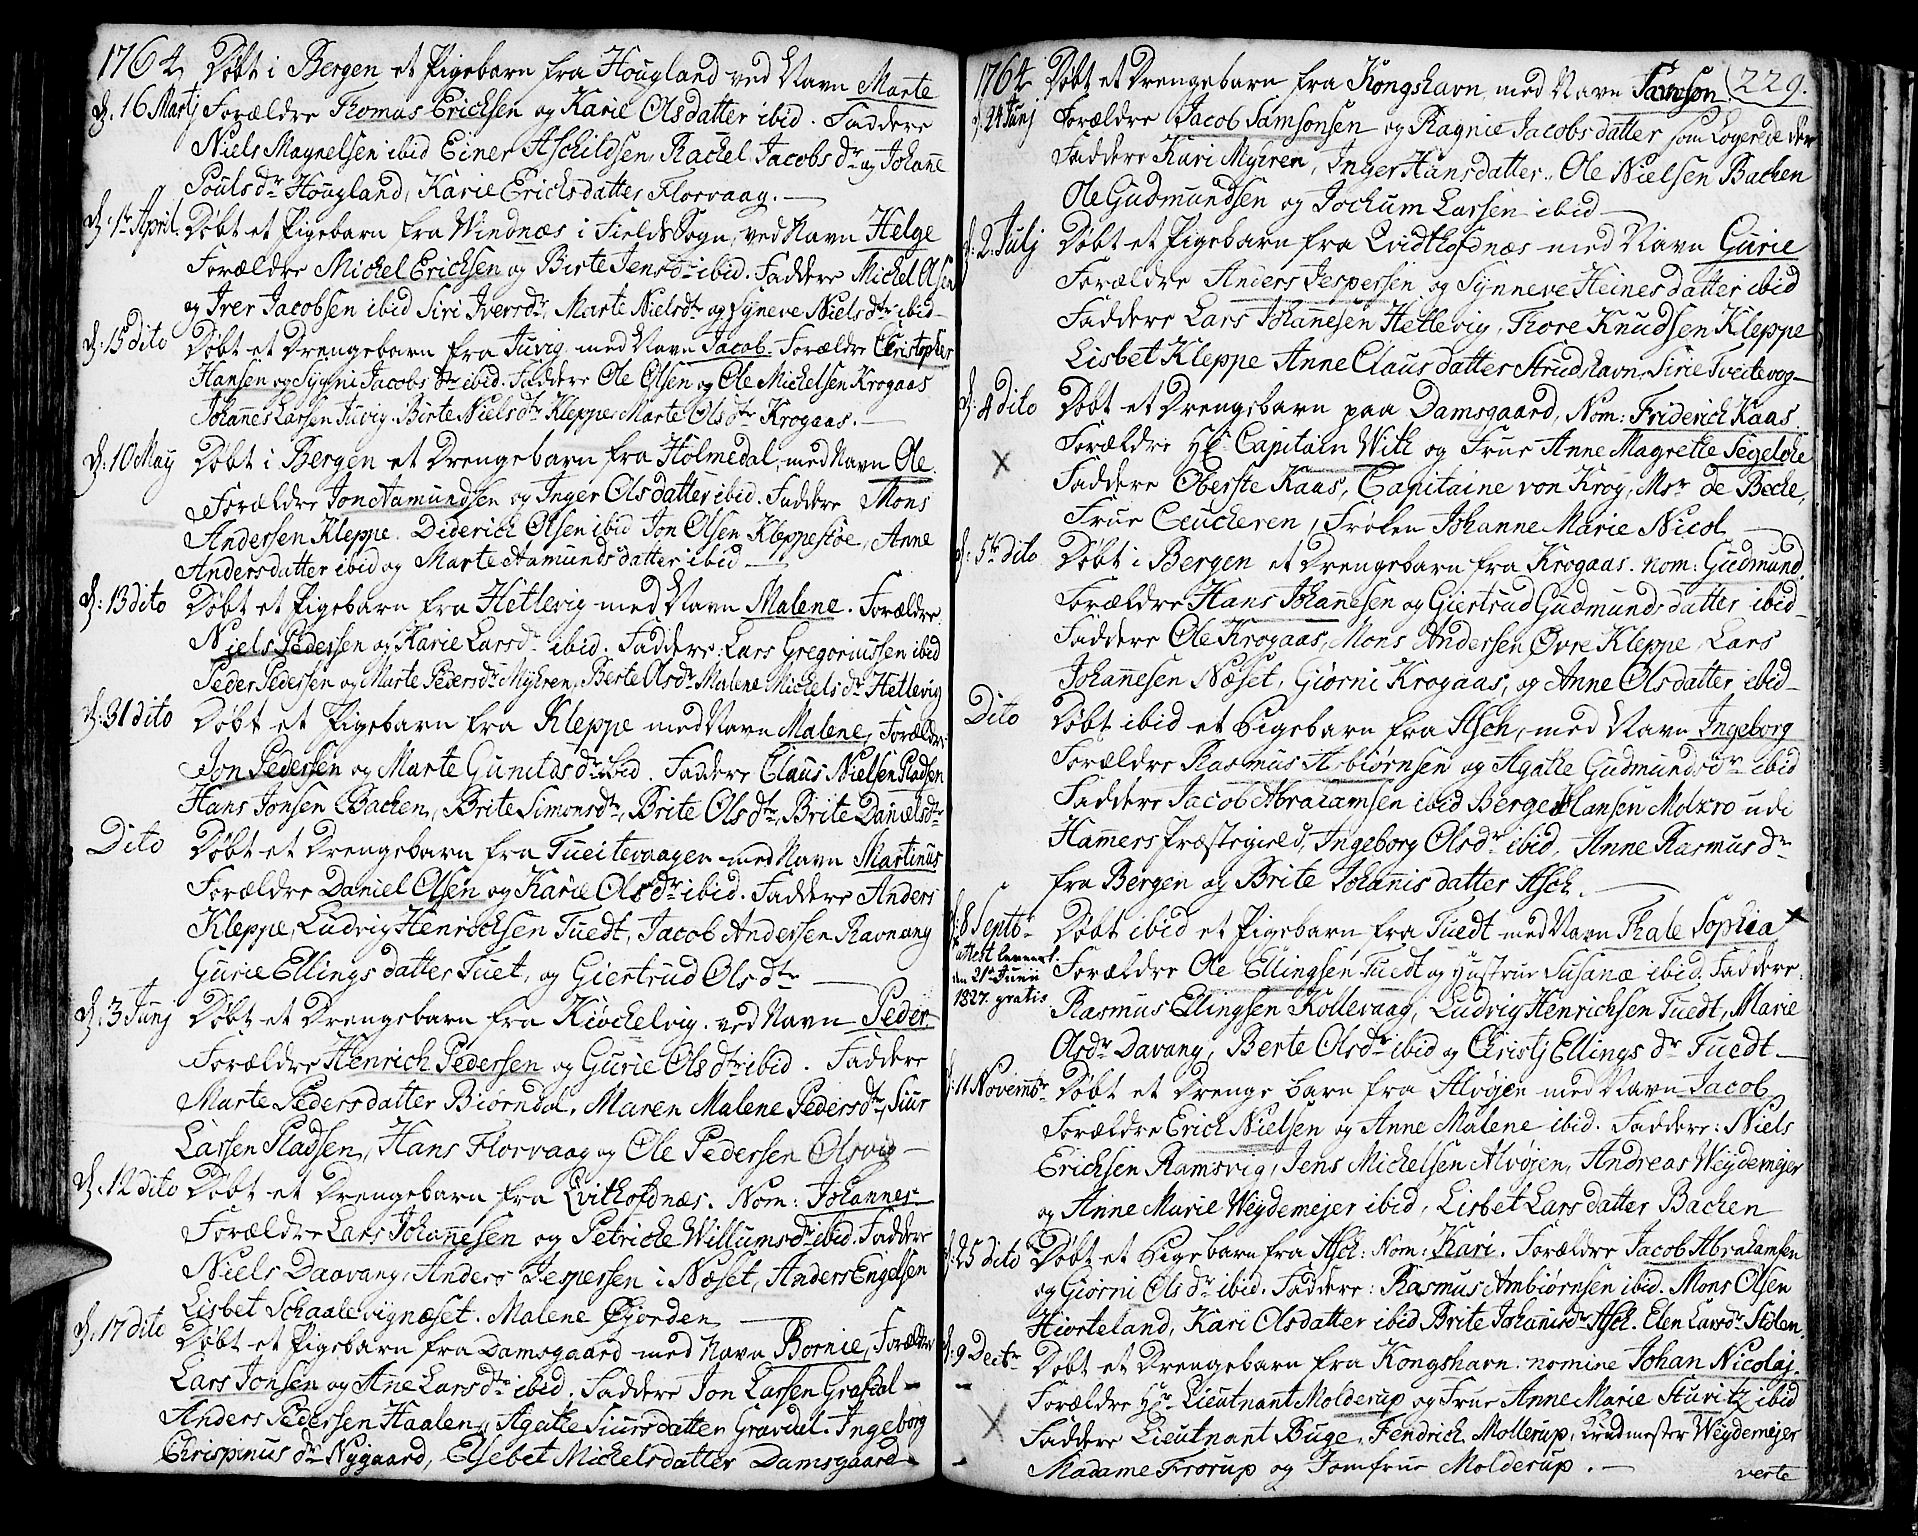 1764 Døbt i Bergen et Pigebarn fra Hougland ved Navn Marte
d. 16 Martj Forældre Thomas Erichsen og Karie Olsdatter ibid. Faddere
Niels Magnelsen ibid Einer Aschildsen, Rachel Jacobs dr og Johanne
Pouls dr Hougland, Karie Erichsdatter Florvaag.
d. 1te April. Døbt et Pigebarn fra Windnæs i Fields Sogn, ved Navn Helge
Forældre Michel Erichsen og Birte Jensdr ibid. Faddere Michel Olsen
og Iver Jacobsen ibid Siri Iversdr, Marte Nielsdr og Syneve Nielsdr ibid
d. 15 dito Døbt et Drengebarn fra Juvig med Navn Jacob. Forældre Christopher
Hansen og Sygni Jacobs dr ibid. Faddere Ole Olsen og Ole Michelsen Krogaas
Johannes Larsen Juvig. Birte Nielsdtr Kleppe Marte Olsdtr Krogaas.
d. 10 May Døbt i Bergen et Drengebarn fra Holmedal, med Navn Ole.
Forældre Jon Aamundsen og Inger Olsdatter ibid. Faddere Mons
Andersen Kleppe. Diderich Olsen ibid Jon Olsen Kleppestøe, Anne
Andersdatter ibid og Marte Aamundsdatter ibid
d. 13 dito Døbt et Pigebarn fra Hetlevig med Navn Malene. Forældre
Niels Pedersen og Karie Larsdr ibid. Faddere: Lars Gregoriussen ibid
Peder Pedersen og Marte Pedersdr Myhren, Berte Olsdr Malene Michelsdr Hetlevig
d. 31 dito Døbt et Pigebarn fra Kleppe med Navn Malene, Forældre
Jon Pedersen og Marte Gunilds dr ibid. Faddere Claus Nielsen Pladsen
Hans Jonsen Bachen, Brite Simonsdtr, Brite Olsdtr, Brite Danielsdtr
Dito Døbt et Drengebarn fra Tueitevaagen med Navn Martinus
Forældre Daniel Olsen og Karie Olsdr ibid. Faddere Anders
Kleppe, Ludvig Henrichsen Tuedt, Jacob Andersen Ravnang
Gurie Ellings datter Tuet, og Giertrud Olsdtr
d. 3 Junj Døbt et Drengebarn fra Kiøchelvig. ved Navn Peder
Forældre Henrich Pedersen og Gurie Olsdtr ibid. Faddere
Marte Pedersdatter Biørndal, Maren Malene Pedersdtr, Siur
Larsen Pladsen, Hans Florvaag og Ole Pedersen Olsvig
d. 12 dito Døbt et Drengebarn fra Qvithofdnæs. Nom: Johannes
Forældre Lars Johannesen og Petriche Willumsdr ibid. Faddere
Niels Daavang, Anders Jespersen i Næset, Anders Engelsen
Lisbet Schaalevignæset. Malene Øjorden
d. 17 dito Døbt et Pigebarn fra Damsgaard med Navn Bornie, Forældre
Lars Jonsen og Ane Larsdtr ibid. Faddere Jon Larsen Grafdal
Anders Pedersen Haalen, Agathe Siursdatter Gravdal. Ingeborg
Chrispinus dr Nygaard, Elsebet Michelsdatter Damsgaard
1764 Døbt et Drengebarn fra Kongshavn, med Navn Samson 229.
d. 24 Junj Forældre Jacob Samsonsen og Ragnie Jacobsdatter som Logerede der
Faddere Kari Myhren, Inger Hansdatter, Ole Nielsen Bachen
Ole Gudmundsen og Jochum Larsen ibid
d. 2 Julj Døbt et Pigebarn fra Qvidthofdnæs med Navn Gurie
Forældre Anders Jespersen og Synneve Heinesdatter ibid
Faddere Lars Johanesen Hetlevig, Thore Knudsen Kleppe
Lisbet Kleppe Anne Clausdatter Strudshavn, Sirie Tveitevog
d. 4 dito Døbt et Drengebarn paa Damsgaard, Nom: Friderich Kaas.
Forældre Hr Capitain With og Frue Anne Magrethe Segelche
Faddere Oberste Kaas, Capitaine von Krog, Msr de Beche,
Frue Ceucheren, Frøken Johanne Marie Nicol
d. 5te dito Døbt i Bergen et Drengebarn fra Krogaas. nom: Gudmund.
Forældre Hans Johanesen og Giertrud Gudmundsdatter ibid
Faddere Ole Krogaas, Mons Andersen Øvre Kleppe, Lars
Johanesen Næset, Giørni Krogaas, og Anne Olsdatter ibid
Dito Døbt ibid et Pigebarn fra Asch, med Navn Ingeborg
Forældre Rasmus Asbiørnsen og Agathe Gudmundsdr ibid
Faddere Jacob Abrahamsen ibid Berge Hansen Molxro udi
Hamers Præstegield, Ingeborg Olsdr ibid, Anne Rasmus dr
fra Bergen og Brite Johanisdatter Asch.
d. 8 Septb. Døbt ibid et Pigebarn fra Tuedt med Navn Thale Sophia
attest leveret
den 21te Junii
1827. gratis
Forældre Ole Ellingsen Tuedt og Hustrue Susanæ ibid. Faddere
Rasmus Ellingsen Kollevaag, Ludvig Henrichsen Tuedt, Marie
Olsdr Davang, Berte Olsdr ibid og Christj Ellings dr Tuedt
d. 11 Novembr Døbt et Drenge barn fra Alvøjen med Navn Jacob
Forældre Erich Nielsen og Anne Malene ibid. Faddere: Niels
Erichsen Ramsvig, Jens Michelsen Alvøjen, Andreas Weydemejer
og Anne Marie Weydemejer ibid, Lisbet Larsdatter Bachen
d. 25 dito Døbt et Pigebarn fra Asch: Nom: Kari. Forældre Jacob Abrahamsen
og Giørni Olsdr ibid. Faddere: Rasmus Ambiørnsen ibid. Mons Olsen
Hiorteland, Kari Olsdatter ibid Brite Johanisdr Asch. Elen Larsdr Stolen.
d. 9 Decbr Døbt et Drengebarn fra Kongshavn nomine Johan Nicolaj.
Forældre Hr Lieutnant Molderup og Frue Anne Marie Sturitz ibid
Faddere Lieutnant Buge, Fendrich Mollerup, Krudmester Weydemejer
Madame Frorup og Jomfrue Molderup.
verte